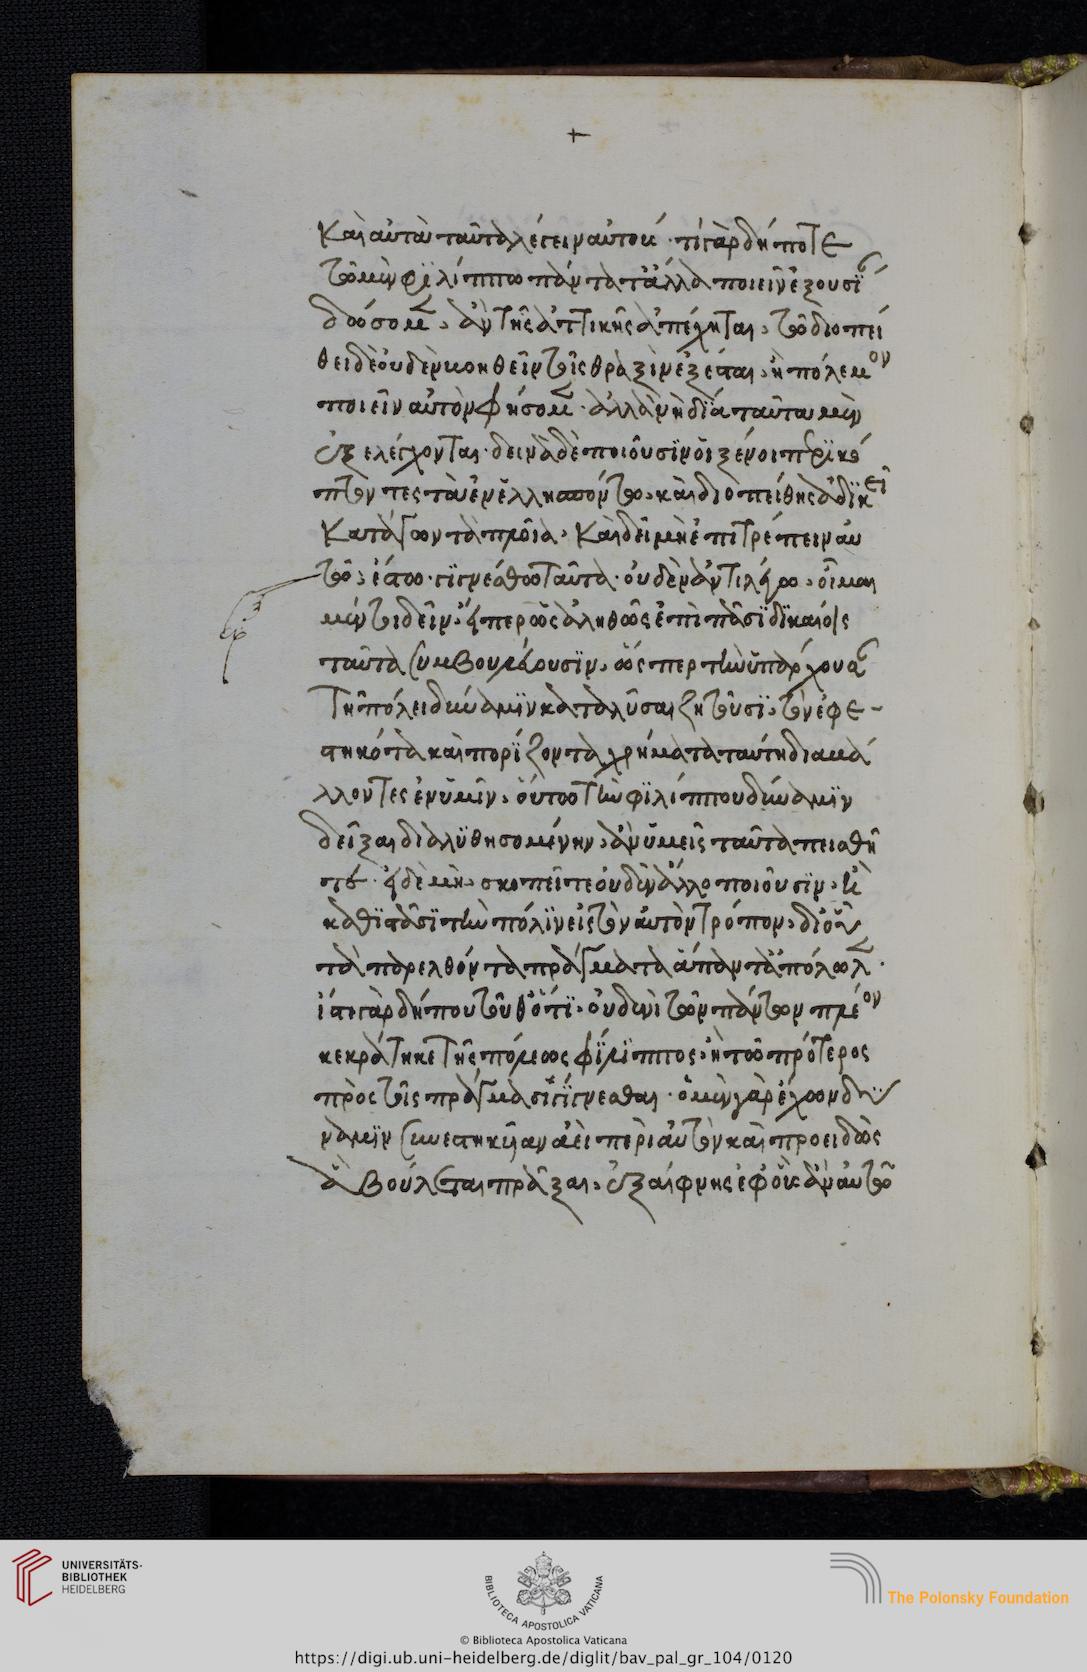 +
καὶ αὐτὰ ταῦτα λέγειν αὐτούς· τί γὰρ δήποτε
τῷ μὲν φιλίππῳ πάντα τἄλλα ποιεῖν ἐξουσίαν
δώσομεν, ἂν τῆς ἀττικῆς ἀπέχηται, τῷ διοπεί
θει δὲ οὐδὲ βοηθεῖν τοῖς θραξὶν ἐξέσται, ἢ πόλεμον
ποιεῖν αὐτὸν φήσομεν· ἀλλὰ νὴ δία ταῦτα μὲν
ἐξελέγχονται· δεινὰ δὲ ποιοῦσιν οἱ ξένοι περικό
πτοντες τὰ ἐν ἑλλησπόντῳ, καὶ διοπείθης ἀδικεῖ
κατάγων τὰ πλοῖα, καὶ δεῖ μὴ ἐπιτρέπειν αὐ
τῷ, ἔστω· γιγνέσθω ταῦτα· οὐδὲν ἀντιλέγω, οἶμαι
μέντοι δεῖν, εἴπερ ὡς ἀληθῶς ἐπὶ πᾶσι δικαίοις
ταῦτα συμβουλεύουσιν, ὥσπερ τὴν ὑπάρχουσαν
τῇ πόλει δύναμιν καταλῦσαι ζητοῦσι, τὸν ἐφε-
στηκότα καὶ πορίζοντα χρήματα ταύτῃ διαβά
λλοντες ἐν ὑμῖν, οὕτω τὴν φιλίππου δύναμιν
δεῖξαι διαλυθησομένην, ἂν ὑμεῖς ταῦτα πεισθῆ
τε· εἰ δὲ μὴ, σκοπεῖτε οὐδὲν ἄλλο ποιοῦσιν, ἢ
καθιστᾶσι τὴν πόλιν εἰς τὸν αὐτὸν τρόπον, δι' οὗ
τὰ παρελθόντα πράγματα ἅπαντα ἀπόλωλεν·
ἴστε γὰρ δήπου τοῦθ' ὅτι, οὐδενὶ τῶν πάντων πλέον
κεκράτηκε τῆς πόλεως φίλιππος, ἢ τῷ πρότερος
πρὸς τοῖς πράγμασι γίγνεσθαι· ὁ μὲν γὰρ ἔχων δύ
ναμιν συνεστηκυῖαν ἀεὶ περὶ αὑτὸν καὶ προειδὼς
ἃ βούλεται πρᾶξαι, ἐξαίφνης ἐφ' οὓς ἂν αὐτῷ
UNIVERSITÄTS-
BIBLIOTHEK
HEIDELBERG
BIBLIOTECA APOSTOLICA VATICANA
The Polonsky Foundation
© Biblioteca Apostolica Vaticana
https://digi.ub.uni-heidelberg.de/diglit/bav_pal_gr_104/0120